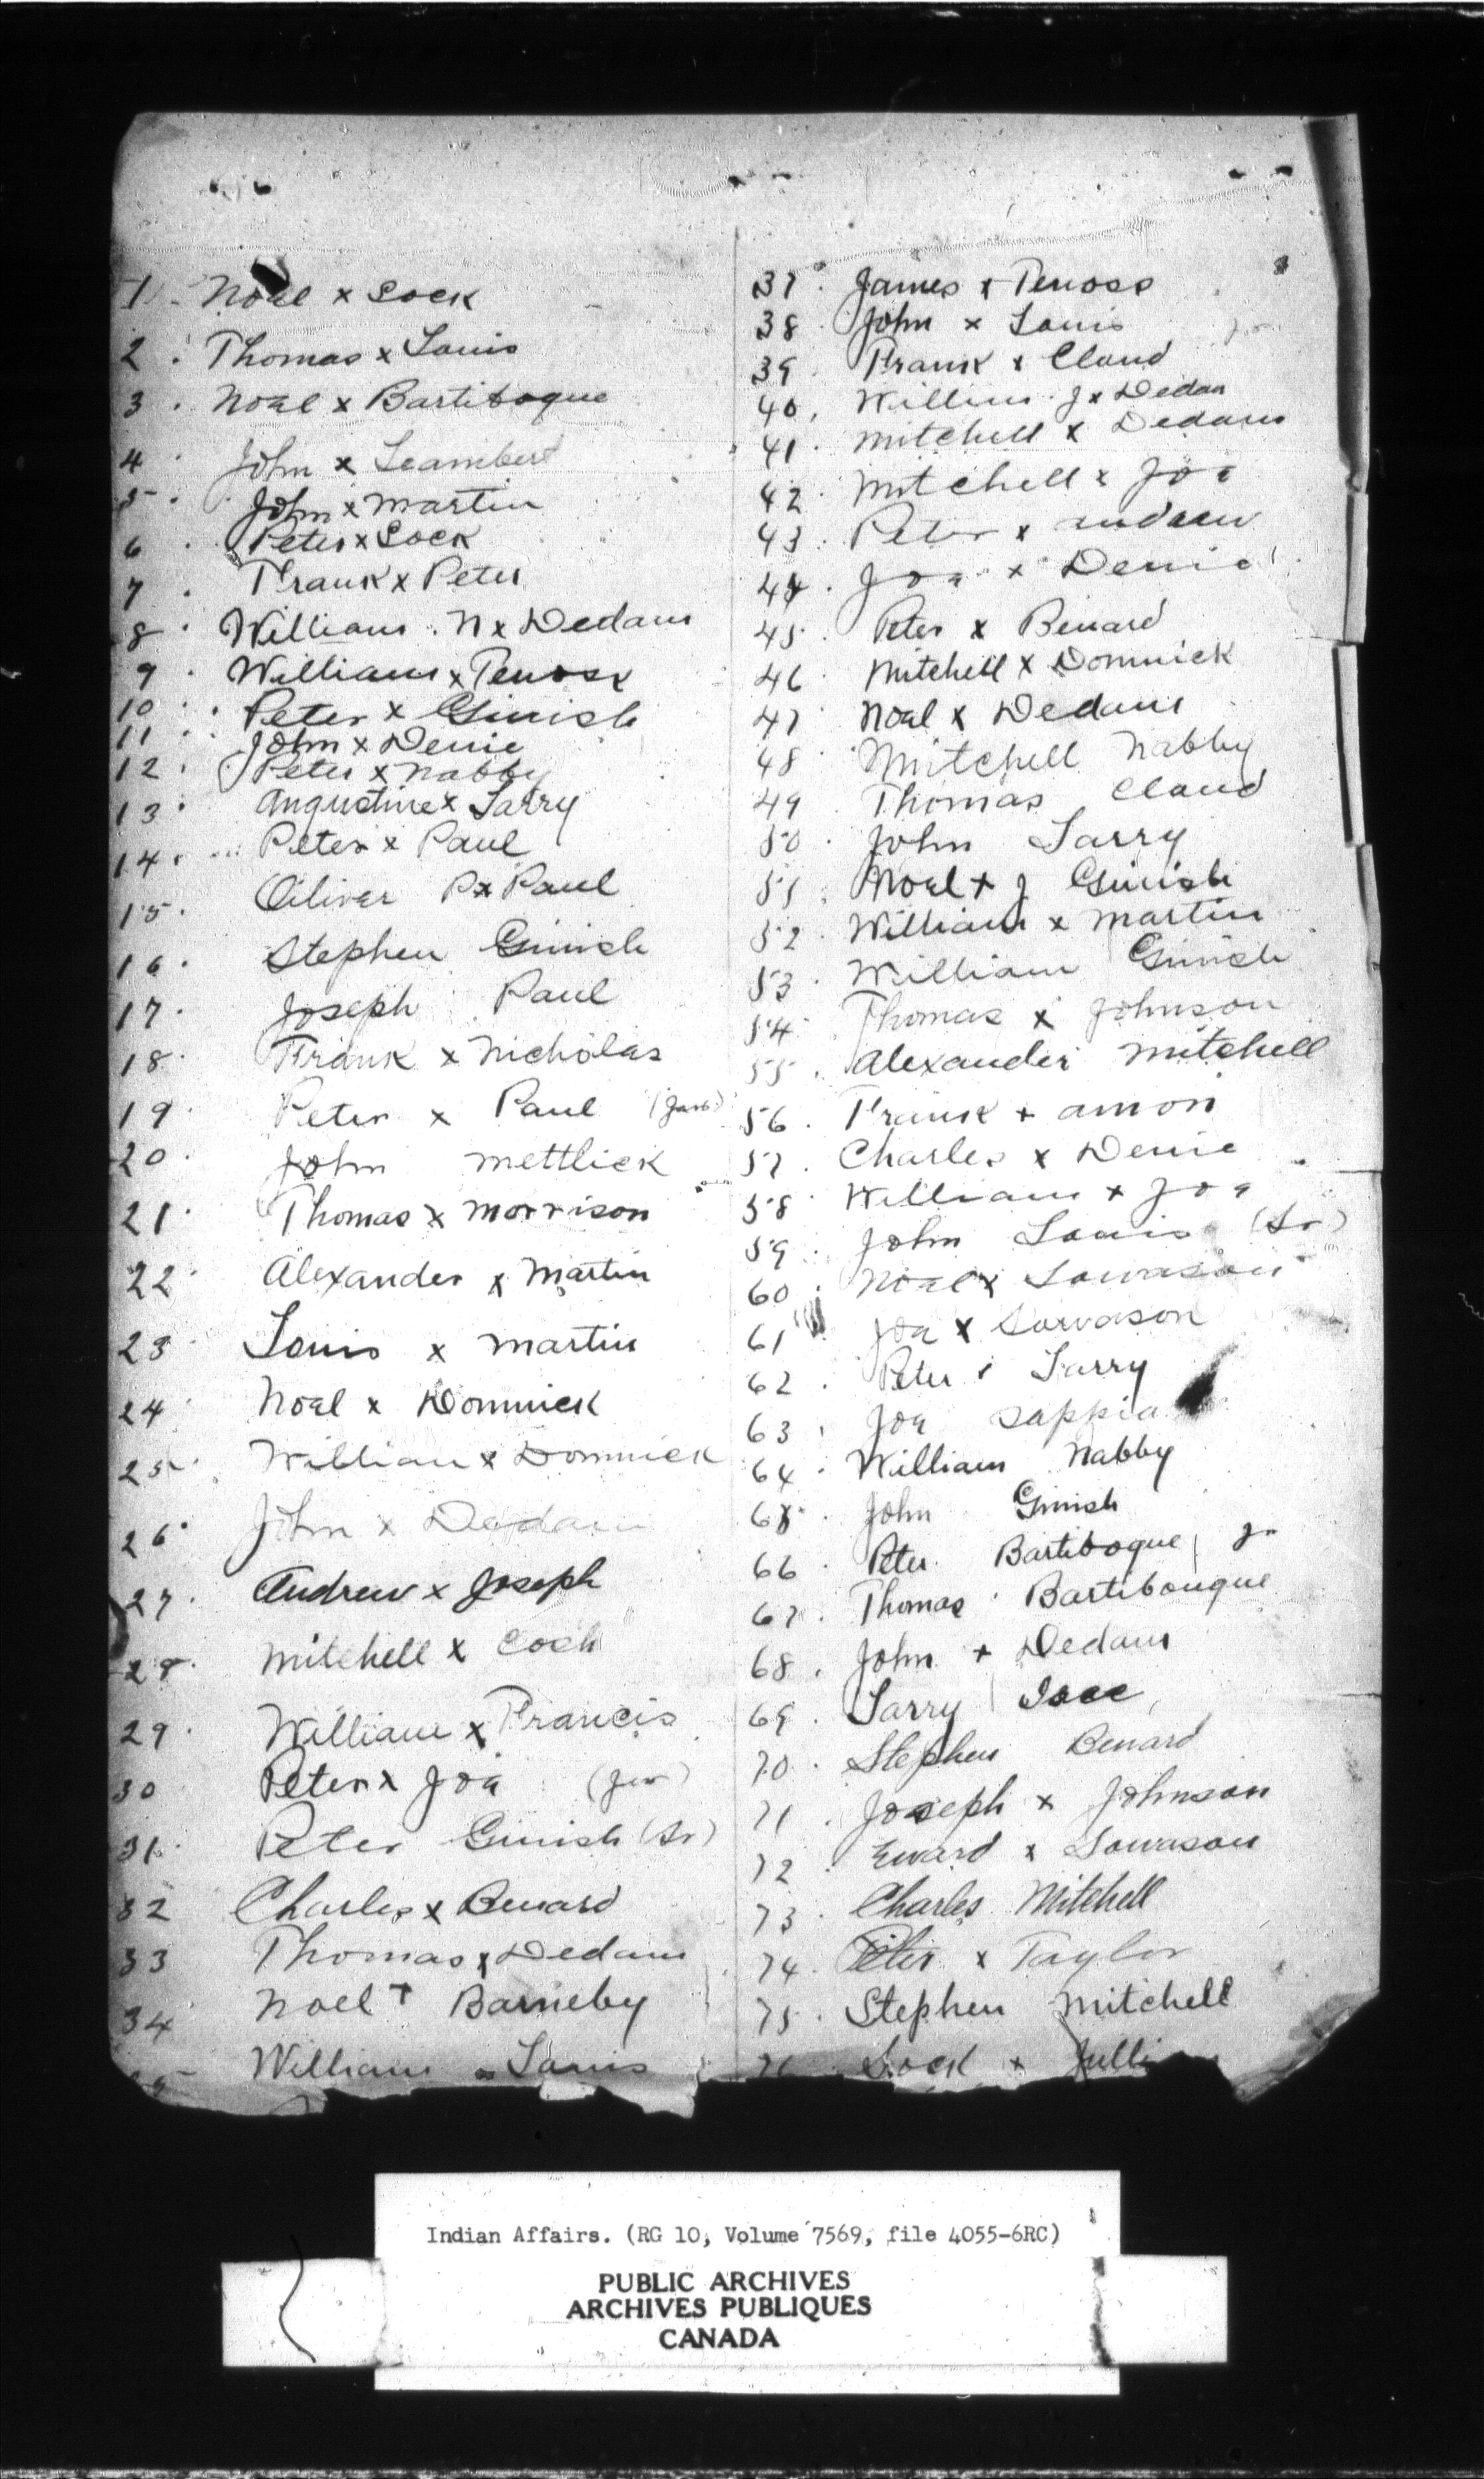 1. Noel x Sock
2. Thomas x Louis
3. Noel x Bartiboque
4. John x Leambert
5. John x Martin
6. Peter x Sock
7. Frank x Peter
8. William . N x Dedam
9. William x Tenoss
10. Peter x Ginish
11. John x Denie
12. Peter x Nabby
13. Augustine x Larry
14. Peter x Paul
15. Oiliver P x Paul
16. Stephen Ginish
17. Joseph Paul
18. Frank x Nicholas
19. Peter x Paul
20. John Mettlick
21. Thomas x Morrison
22. Alexander x Martin
23. Louis x Martin
24. Noel x Domnick
25. William x Domnick
26. John x Dedam
27. Andrew x Joseph
28. Mitchell x Cosh
29. William x Francis
30 Peter x Joa (Jur)
31. Peter Ginish (Sr)
32 Charles x Benard
33 Thomas x Dedam
34 Noel + Barneby
35 William Louis
37. James x Tenoss
38. John x Louis
39. Frank x Claud
40. William J x Dedam
41. Mitchell x Dedam
42. Mitchell x Joa
43. Peter x Andrew
44. Joa x Denie
45. Peter x Benard
46. Mitchell x Domnick
47. Noel x Dedam
48. Mitchell Nabby
49. Thomas Claud
50. John Larry
51. Noel + J Ginish
52. William x Martin
53. William Ginish
54. Thomas x Johnson
55. Alexander Mitchell
56. Frank + Amon
57. Charles x Denie
58. William + Joa
59. John Louis (Sr)
60. Noel x Sowason
61. Joa x Sorvason
62. Peter Larry
63. Joa Sappia
64. William Nabby
65. John Ginish
66. Peter Bartiboque Jr
67. Thomas Bartibouque
68. John + Dedam
69. Larry Isac
70. Stephen Benard
71. Joseph x Johnson
72. Eward x Sowason
73. Charles Mitchell
74. Peter x Taylor
75. Stephen Mitchell
76 Sock x
Indian Affairs. (RG 10, Volume 7569, file 4055-6RC)
PUBLIC ARCHIVES
ARCHIVES PUBLIQUES
CANADA